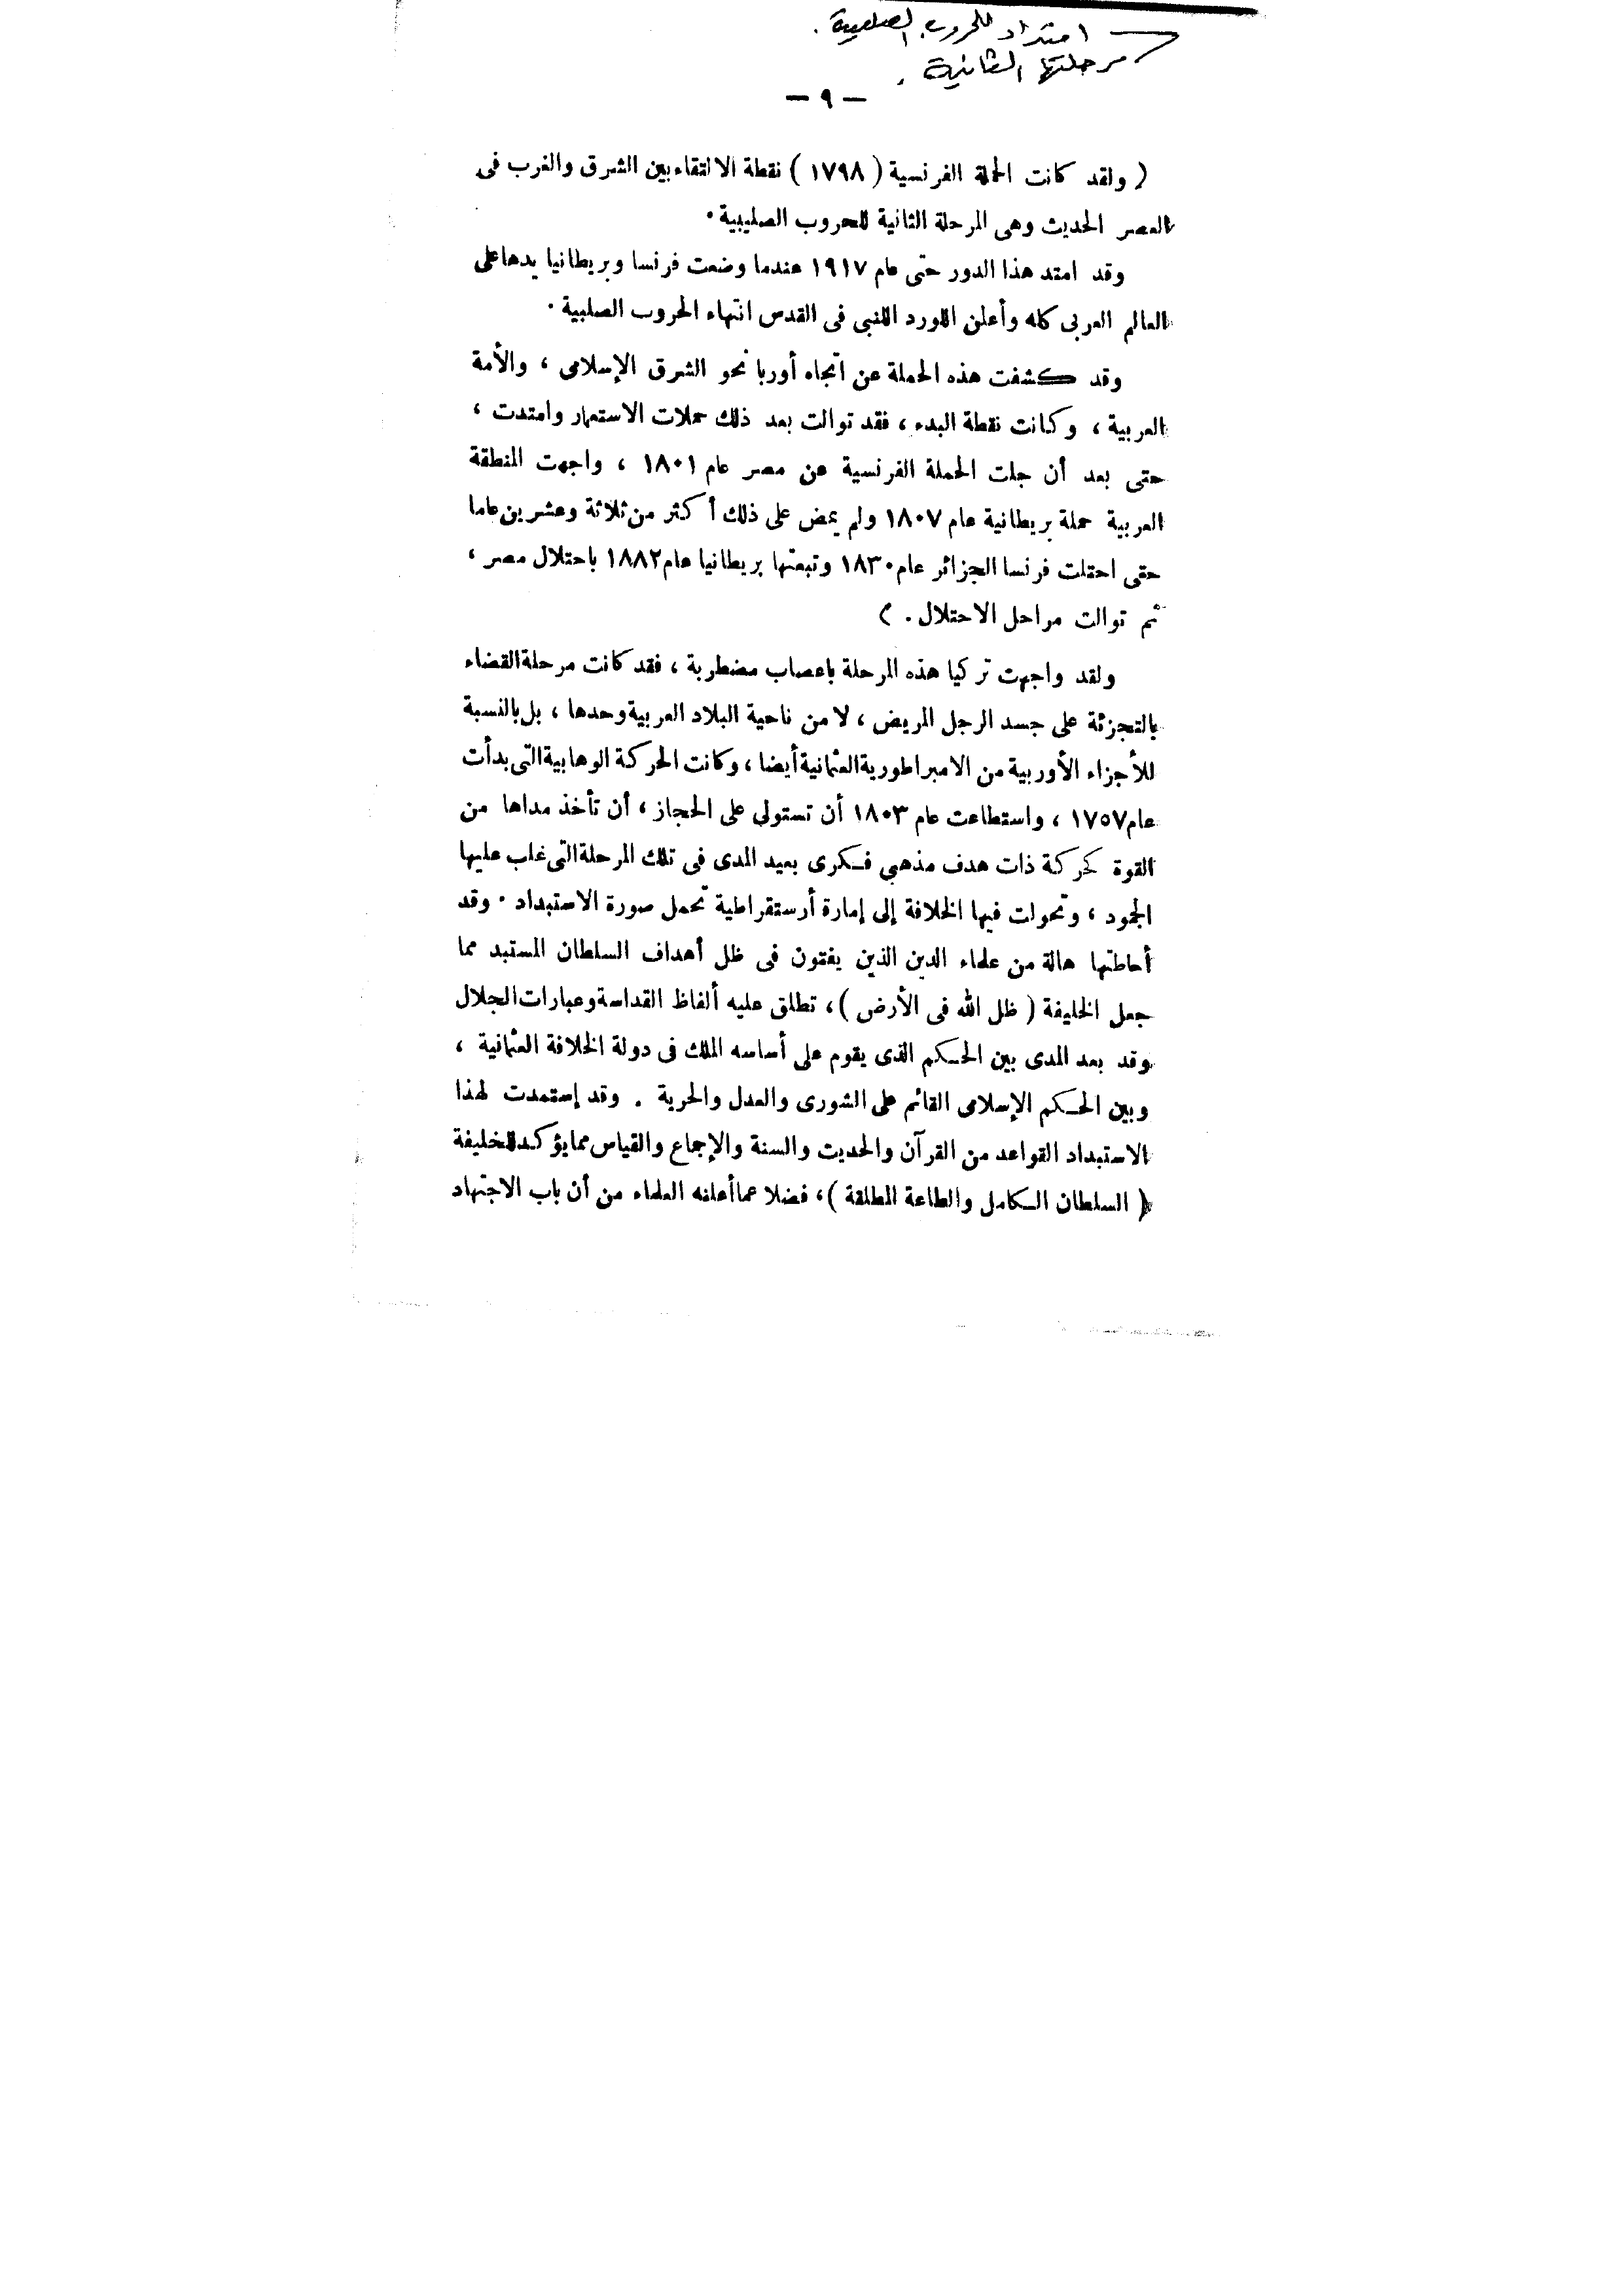 امتداد للحروب الصليبية .
مرحلتها الثانية .
— ٩ —
( ولقد كانت الحملة الفرنسية ( ١٧٩٨ ) نقطة الالتقاء بين الشرق والغرب فى
العصر الحديث وهى المرحلة الثانية للحروب الصليبية .
وقد امتد هذا الدور حتى عام ١٩١٧ عندما وضعت فرنسا وبريطانيا يدها على
العالم العربى كله وأعلن اللورد اللنبى فى القدس انتهاء الحروب الصلبية .
وقد كشفت هذه الحملة عن اتجاه أوربا نحو الشرق الإسلامى ، والأمة
العربية ، وكانت نقطة البدء ، فقد توالت بعد ذلك حملات الاستعمار وامتدت ،
حتى بعد أن جلت الحملة الفرنسية عن مصر عام ١٨٠١ ، واجهت المنطقة
العربية حملة بريطانية عام ١٨٠٧ ولم يمض على ذلك أكثر من ثلاثة وعشرين عاما
حتى احتلت فرنسا الجزائر عام ١٨٣٠ وتبعتها بريطانيا عام ١٨٨٢ باحتلال مصر ،
ثم توالت مراحل الاحتلال . )
ولقد واجهت تركيا هذه المرحلة باعصاب مضطربة ، فقد كانت مرحلة القضاء
بالتجزئة على جسد الرجل المريض ، لا من ناحية البلاد العربية وحدها ، بل بالنسبة
للأجزاء الأوربية من الامبراطورية العثمانية أيضا ، وكانت الحركة الوهابية التى بدأت
عام ١٧٥٧ ، واستطاعت عام ١٨٠٣ أن تستولى على الحجاز ، أن تأخذ مداها من
القوة كحركة ذات هدف مذهبي فكرى بعيد المدى فى تلك المرحلة التى غلب عليها
الجمود ، وتحولت فيها الخلافة إلى إمارة أرستقراطية تحمل صورة الاستبداد . وقد
أحاطتها هالة من علماء الدين الذين يفتون فى ظل أهداف السلطان المستبد مما
جعل الخليفة ( ظل الله فى الأرض ) ، تطلق عليه ألفاظ القداسة وعبارات الجلال
وقد بعد المدى بين الحكم الذى يقوم على أساسه الملك فى دولة الخلافة العثمانية ،
وبين الحكم الإسلامى القائم على الشورى والعدل والحرية . وقد إستمدت لهذا
الاستبداد القواعد من القرآن والحديث والسنة والإجماع والقياس مما يؤكد للخليفة
( السلطان الكامل والطاعة المطلقة ) ، فضلا عما أعلنه العلماء من أن باب الاجتهاد